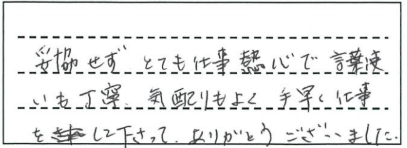 妥協せず とても仕事熱心で 言葉使
いも丁寧、気配りもよく 手早く仕事
をして下さって、ありがとう ございました。